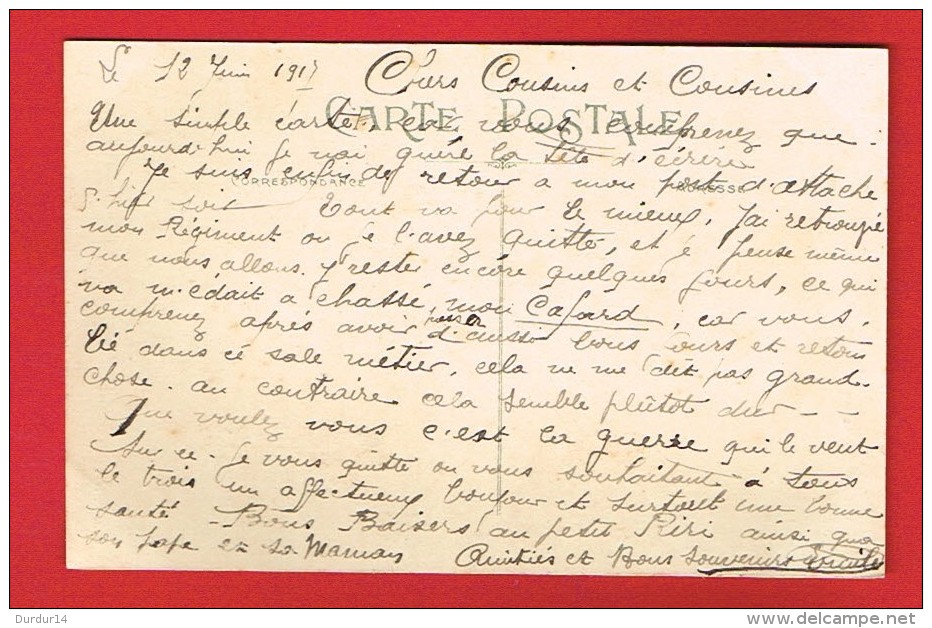 Le 12 Juin 1917 Chers Cousins et Cousines
CARTE POSTALE
Une simple carte, car vous comprenez que
aujourd'hui je n'ai guère la tête d'écrire
CORRESPONDANCE ADRESSE
Je suis enfin de retour a mon port d'attache
d'hier soir Tout va pour le mieux, J'ai retrouvé
mon Régiment ou je l'avez quitté, et je pense même
que nous allons y rester encore quelques jours, ce qui
va m'édait a chassé mon Cafard, car vous
comprenez aprés avoir passer d'aussi bons jours et retom
bé dans cé sale métier, cela ne me dit pas grand
chose. au contraire cela semble plûtot dur - -
Que voulez vous c'est la guerre qui le veut
Sur ce. je vous quitte en vous souhaitant à tous
le trois un affectueux bonjour et surtout une bonne
santé - Bons Baisers au petit Riri ainsi qua
son papa et sa Maman Amitiés et Bons Souvenirs
Durdur14
delcampe.net